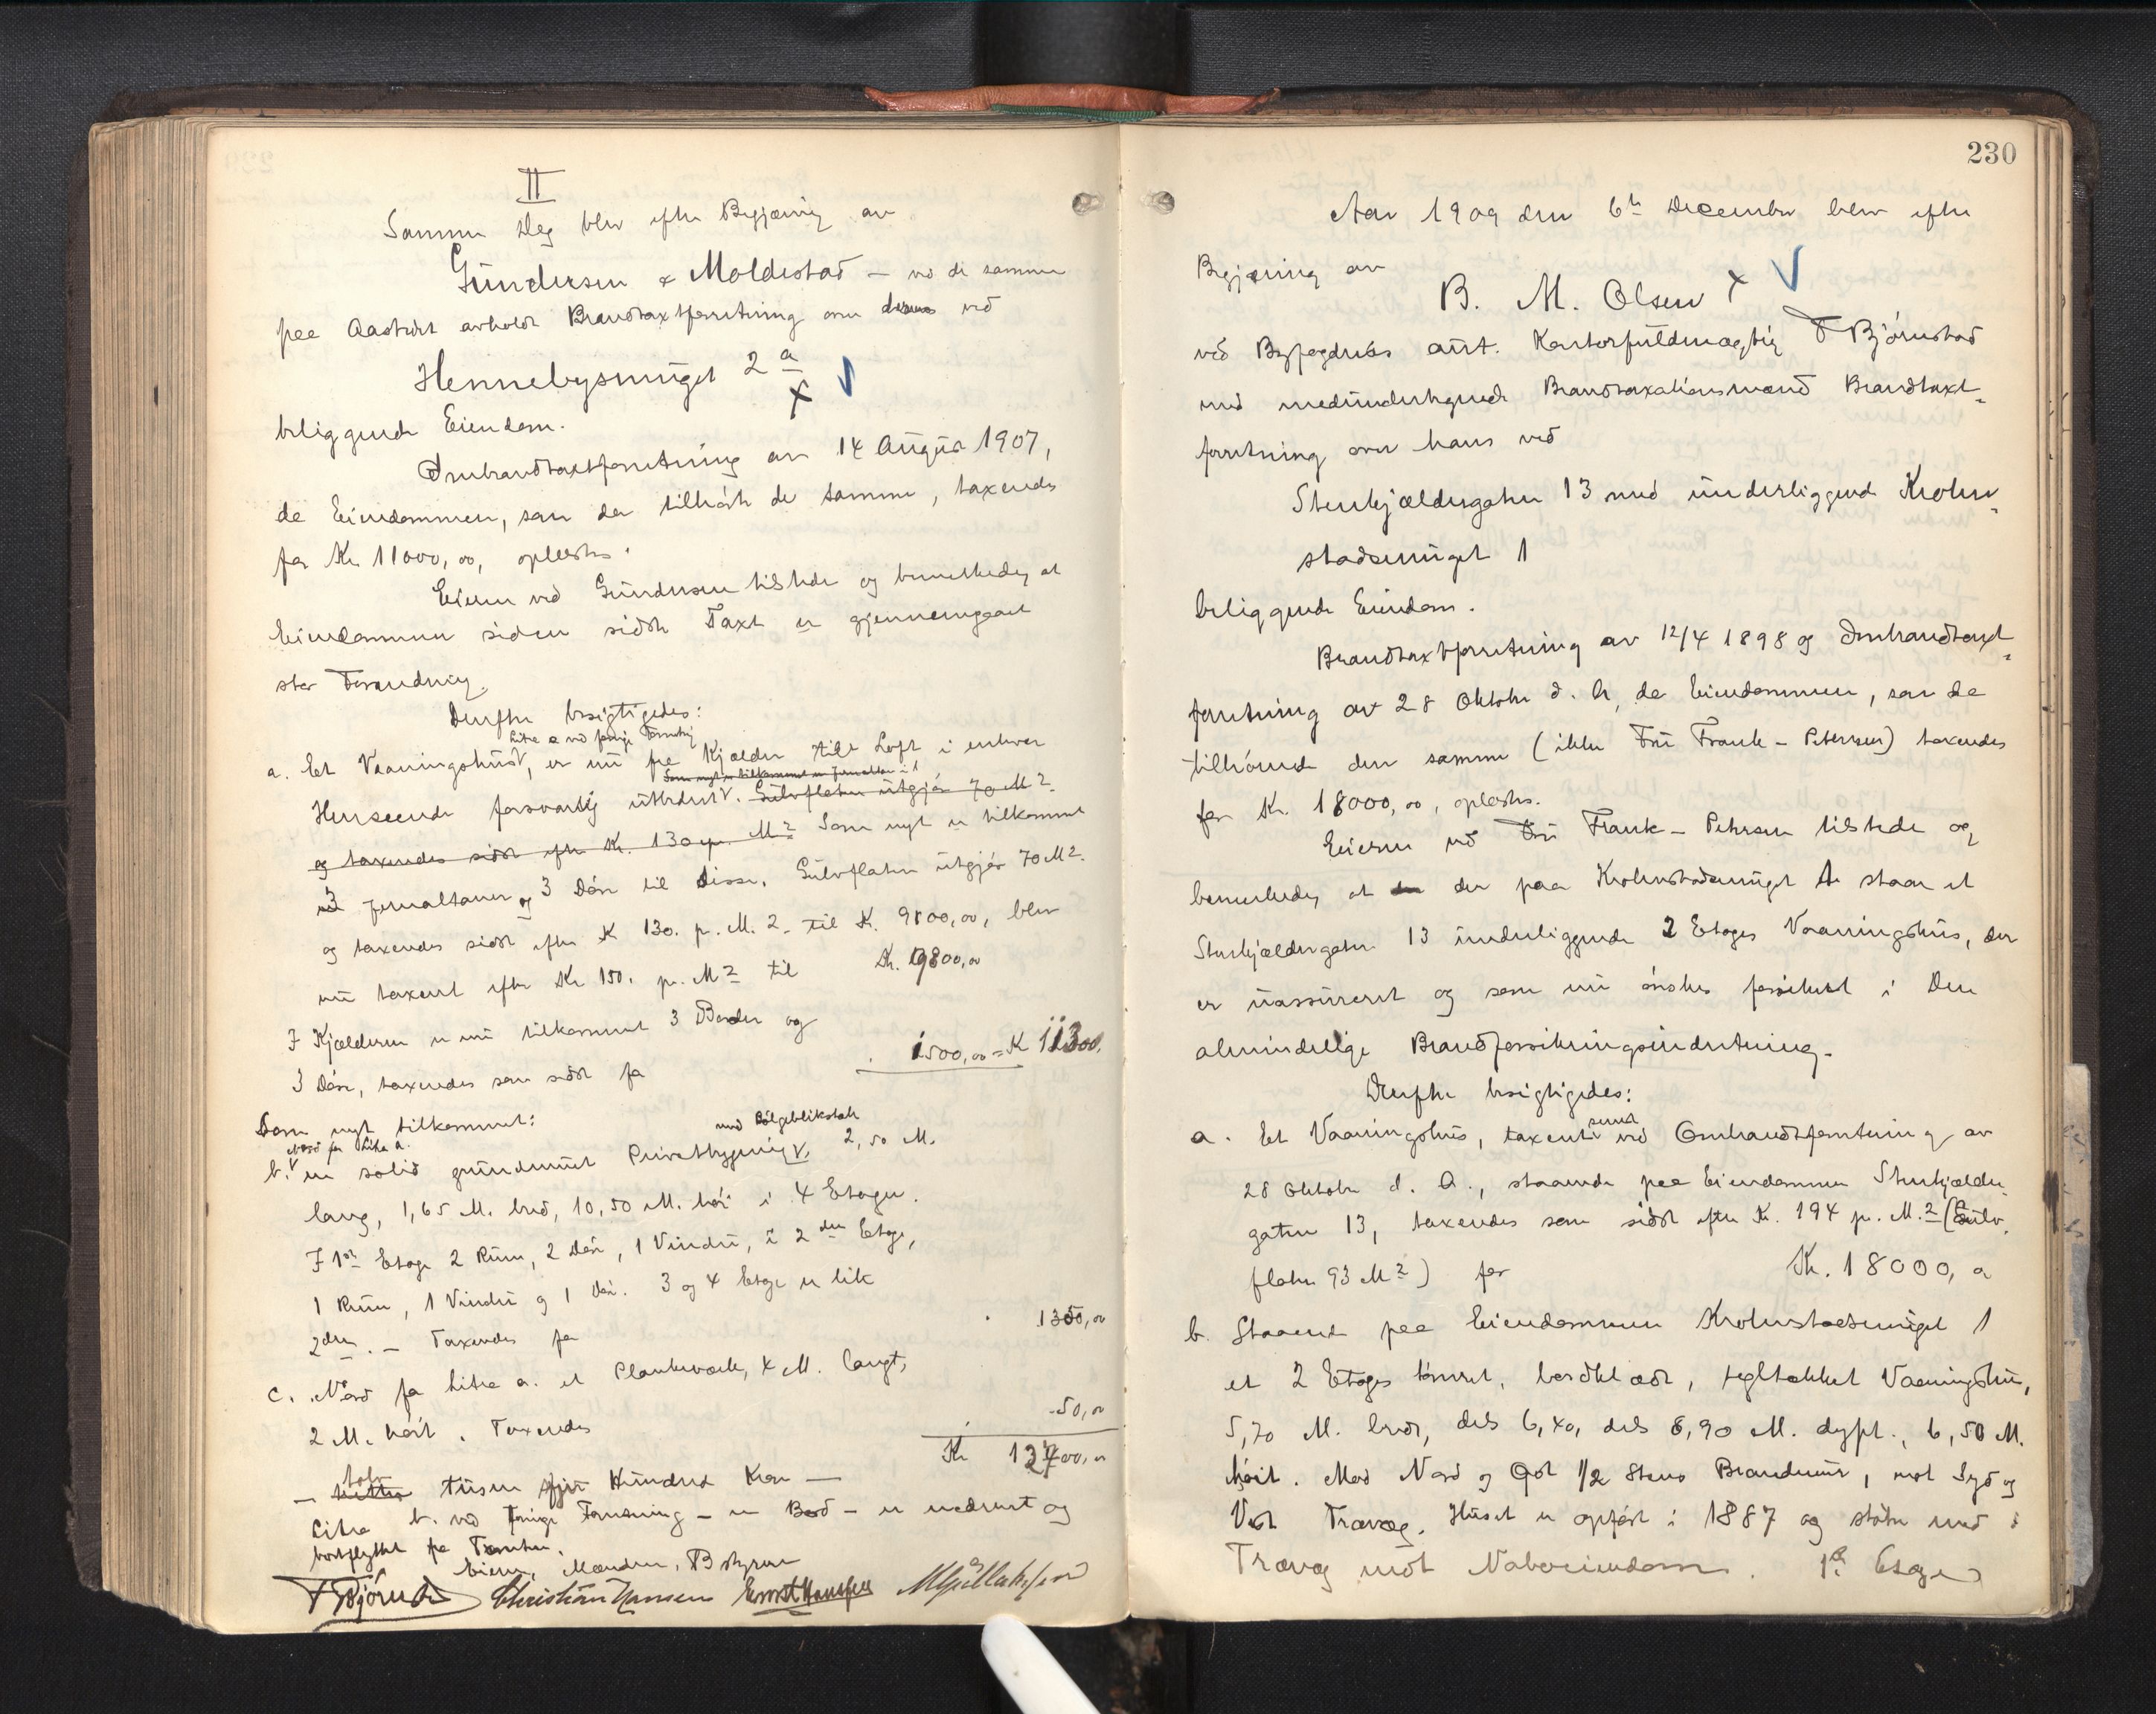 II
Samme Dag blev efter Begjæring av
Gundersen & Moldestad – av de samme
paa Aastedet avholdt Brandtaxtforretning over deres ved
Hennebysmuget 2 a
x
beliggende Eiendom.
Ombrandtaxtforretning av 14 August 1907,
da Eiendommen, som da tilhørte de samme, taxeredes
for Kr 11000,00, oplæstes.
Eieren ved Gundersen tilstede og bemerkedes at
Eiendommen siden sidste Taxt er gjennemgaaet
stor Forandring.
Derefter besigtigedes:
Litra a ved forrige Forretning
a. Et Vaaningshus, er nu fra Kjælder til Loft i enhver
Som nyt er tilkommet en Jernaltan i 1
Henseende forsvarlig utbedret. Gulvflaten utgjør 70 M2
og taxeredes sidst efter Kr. 130 pr. M2 Som nyt er tilkommet
3 Jernaltaner og 3 Døre til disse. Gulvflaten utgjør 70 M2.
og taxeredes sidst efter K 130. p. M. 2. til K. 9800,00, blev
nu taxert efter Kr 150. pr. M2 til Kr. 9800,00
I Kjælderen er nu tilkommet 3 Boder og
3 Døre, taxeredes som sidst for 1500,00 = K 11300,
Som nyt tilkommet:
Nord for Litra a.
med Bølgebliktak
b. en solid grundmuret Privetbygning, 2,50 M.
lang, 1,65 M. bred, 10,50 M. høi i 4 Etager.
I 1ste Etage 2 Rum, 2 Døre, 1 Vindu, i 2den Etage,
1 Rum, 1 Vindu og 1 Dør. 3 og 4 Etage er lik
2den. – Taxeredes for 1350,00
c. Nord for Litra a. et Plankeværk, 4 M. langt,
2 M. høit. Taxeredes 50,00
Kr 12700,00
tolv
– tusen syv Hundred Kron –
Litra b. ved forrige Forretning – en Bod – er nedrevet og
bortflyttet fra Tomten.
Eieren, Mænden, Bestyreren
F Bjørnstad Christian Hansen Ernst Hansen
230
Aar 1909 den 6te December blev efter
Begjæring av
B. M. Olsen x
ved Byfogdens aut. Kontorfuldmægtig F Bjørnstad
med medundertegnede Brandtaxationsmænd Brandtaxt-
forretning over hans ved
Stenkjældergaten 13 med underliggende Krohn-
stadsmuget 1
beliggende Eiendom.
Brandtaxtforretning av 12/4 1898 og Ombrandtaxt-
forretning av 28 Oktober d. A, da Eiendommen, som da
tilhørende den samme (ikke Fru Frank-Petersen) taxeredes
for Kr. 18000,00, oplæstes.
Eieren ved Fru Frank-Petersen tilstede og
bemerkedes at der paa Krohnstadsmuget 1 staar et
Stenkjældergaten 13 underliggende 2 Etages Vaaningshus, der
er uassureret og som nu ønskes forsikret i Den
almindelige Brandforsikringsindretning.
Derefter besigtigedes:
senest
a. Et Vaaningshus, taxert ved Ombrandtforretning av
28 Oktober d. A., staaende paa Eiendommen Stenkjælder-
gaten 13, taxeredes som sidst efter K. 194 pr. M.2 (Gulv-
flaten 93 M2) for Kr. 18000,00
b. Staaende paa Eiendommen Krohnstadsmuget 1
et 2 Etages tømret, bordklædt, tegltækket Vaaningshus,
5,70 M. bredt, dels 6,40, dels 8,90 M. dypt., 6,50 M.
høit. Mod Nord og Øst 1/2 Stens Brandmur, mot Syd og
Vest Trævæg. Huset er opført i 1887 og støter med
Trævæg mot Naboeiendom. 1ste Etage